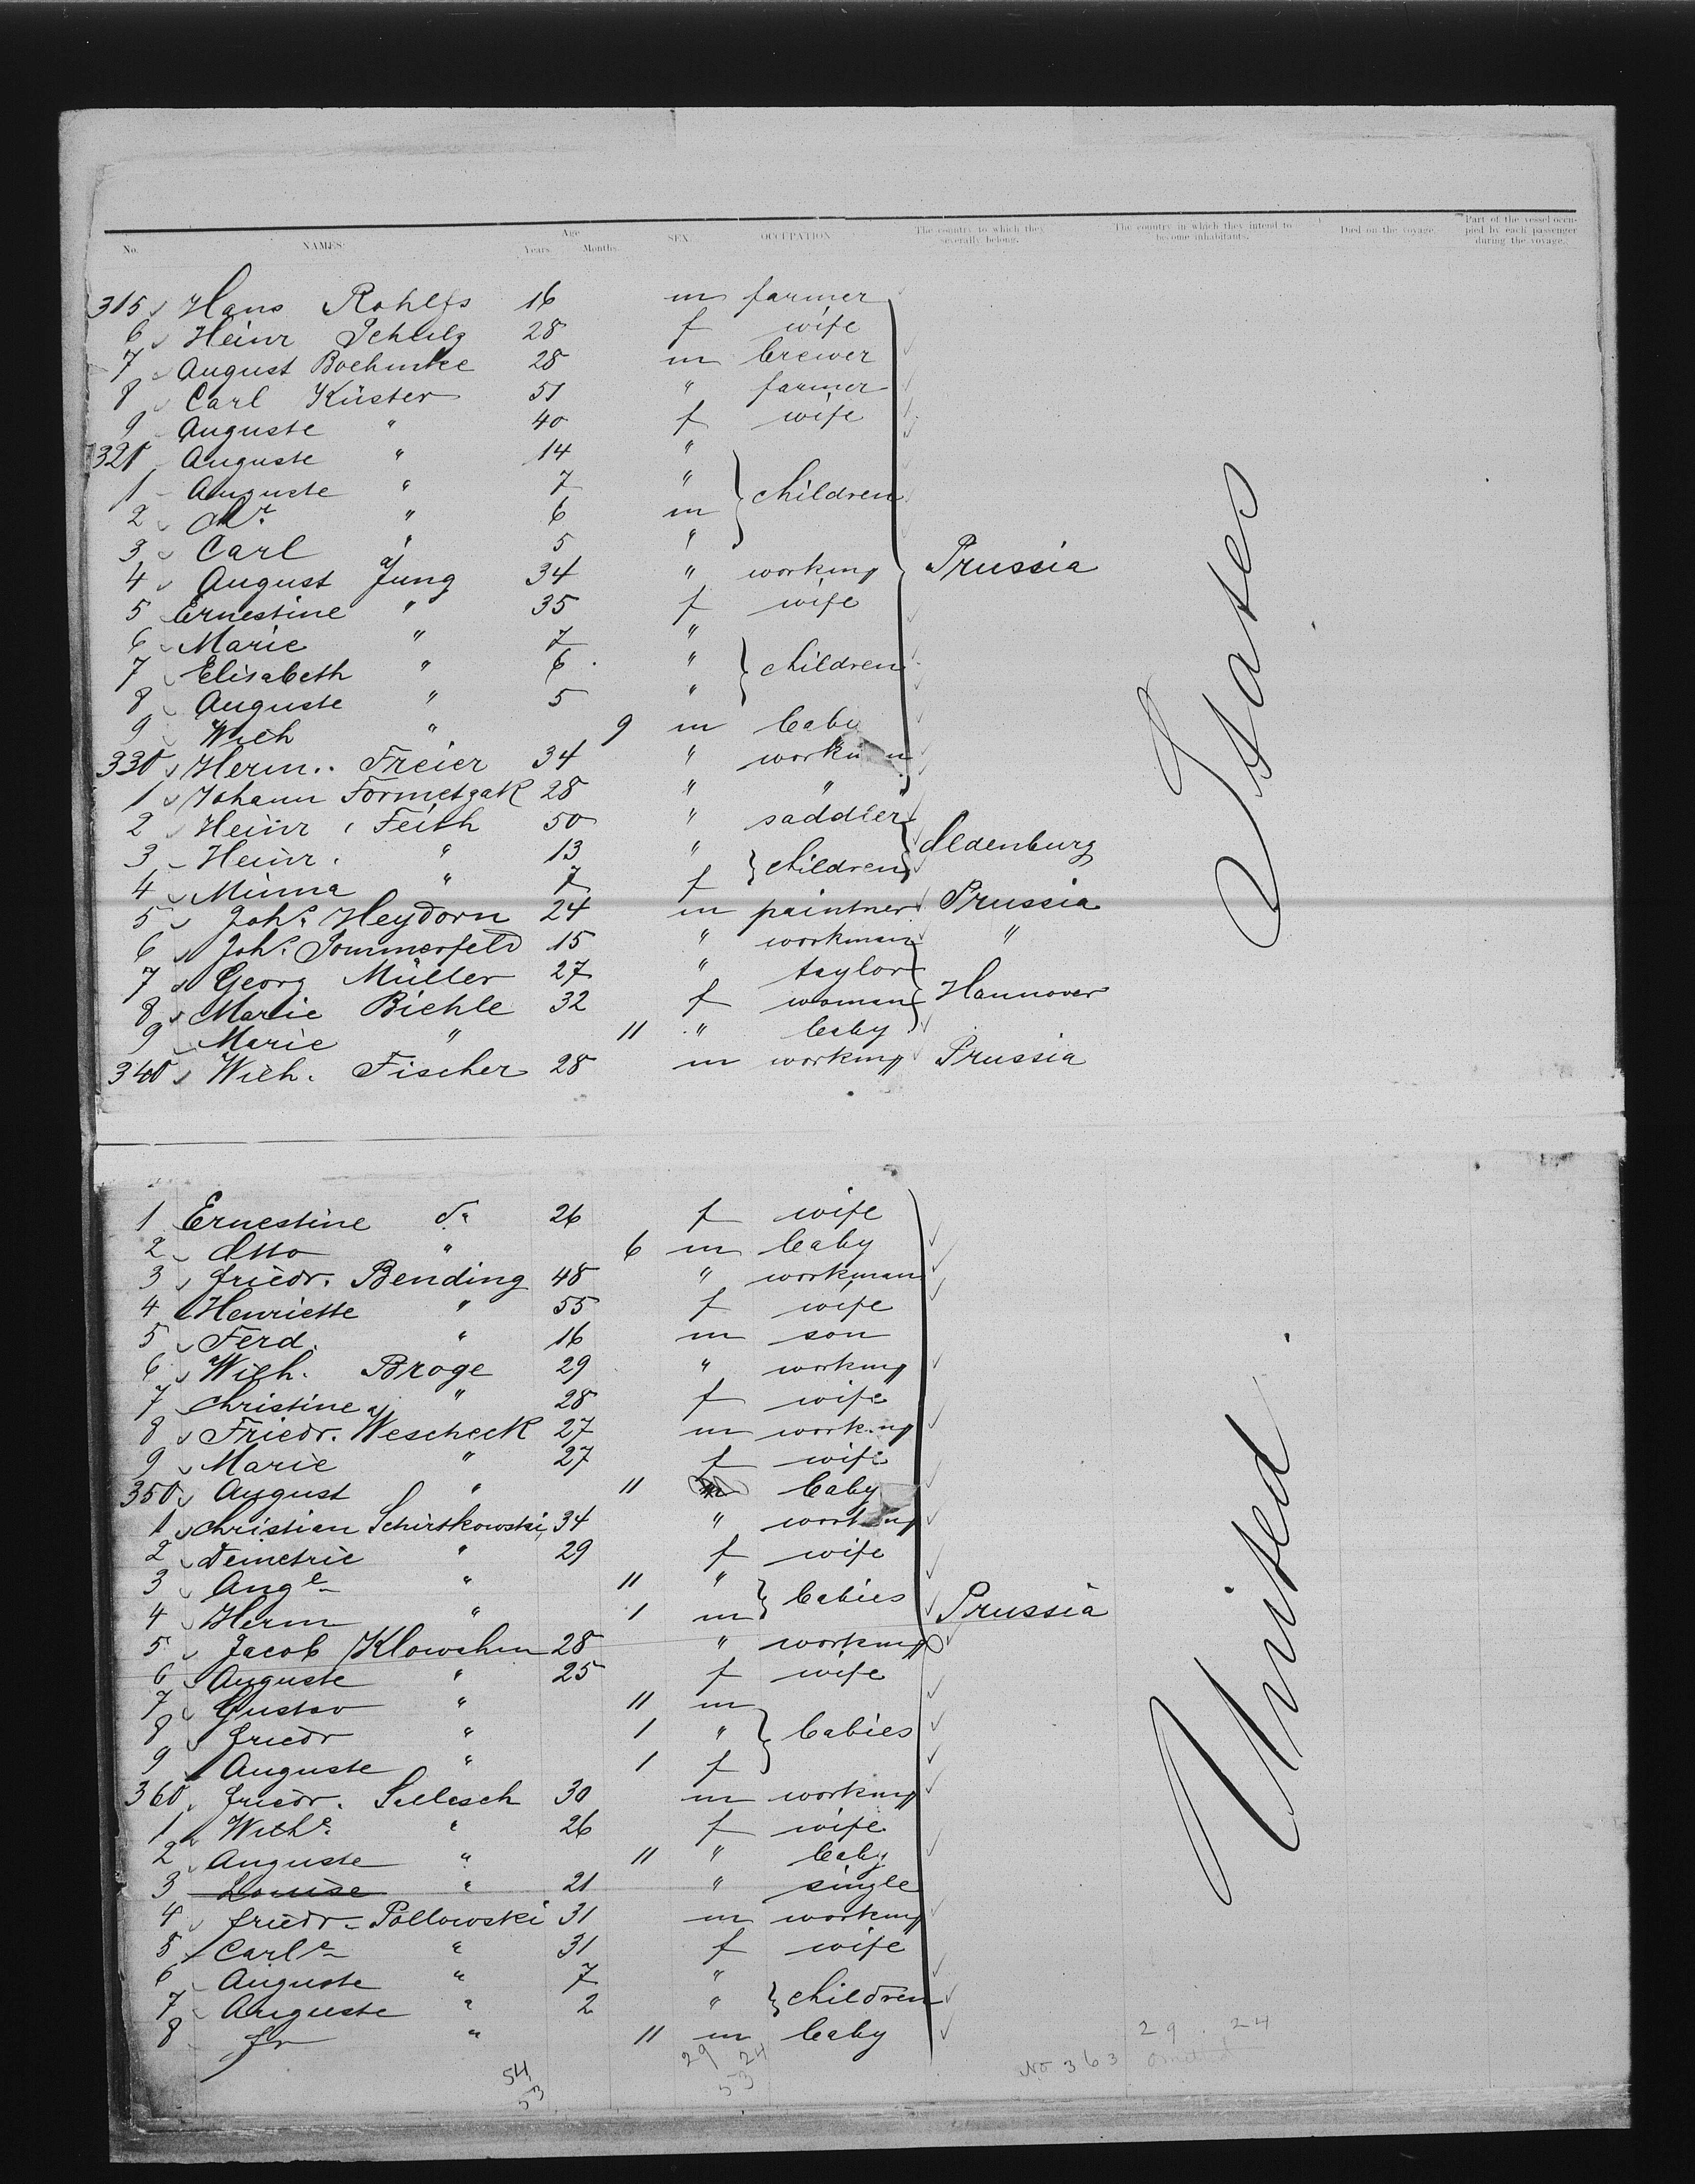 No. NAMES. Age Years. Months. SEX. OCCUPATION. The country to which they severally belong. The country in which they intend to become inhabitants. Died on the voyage. Part of the vessel occupied by each passenger during the voyage.
315 Hans Rohlfs 16 m farmer
6 Heinr 28 f wife
7 August Boehmke 28 m brewer
8 Carl Küster 51 " farmer
9 Auguste " 40 f wife
320 Auguste " 14 "
1 Auguste " 7 " children
2 " 6 m
3 Carl " 5 "
4 August Jung 34 " working Prussia
5 Ernestine " 35 f wife
6 Marie " 7 "
7 Elisabeth " 6 " children
8 Auguste " 5 "
9 Wilh " 9 m baby
330 Herm. Freier 34 " workman
1 Johann Formetzak 28 " "
2 Heinr. Feith 50 " saddler Oldenburg
3 Heinr. " 13 " children
4 Minna " 7 f
5 Johs. Heydorn 24 m paintner Prussia
6 Johs. Sommerfeld 15 " workman "
7 Georg Müller 27 " taylor
8 Marie Biehle 32 f woman Hannover
9 Marie " 11 " baby
340 Wilh. Fischer 28 m working Prussia
1 Ernestine do 26 f wife
2 Otto " 6 m baby
3 Friedr. Bending 48 " workman
4 Henriette " 55 f wife
5 Ferd. " 16 m son
6 Wilh. Broge 29 " working
7 Christine " 28 f wife
8 Friedr. Wescheck 27 m working
9 Marie " 27 f wife
350 August " 11 m baby
1 Christian Schirskowski 34 " working
2 Demetrie " 29 f wife
3 Auge " 11 " babies
4 Herm " 1 m Prussia
5 Jacob Klowshn 28 " working
6 Auguste " 25 f wife
7 Gustav " 11 m
8 Friedr " 1 " babies
9 Auguste " 1 f
360 Friedr. Sellesch 30 m working
1 Wilhe. " 26 f wife
2 Auguste " 11 " baby
3 Louise " 21 " single
4 Friedr. Pollowski 31 m working
5 Carle " 31 f wife
6 Auguste " 7 "
7 Auguste " 2 " children
8 Fr " 11 m baby
United States
29 24
29 24
No 363 omitted
54 53
53